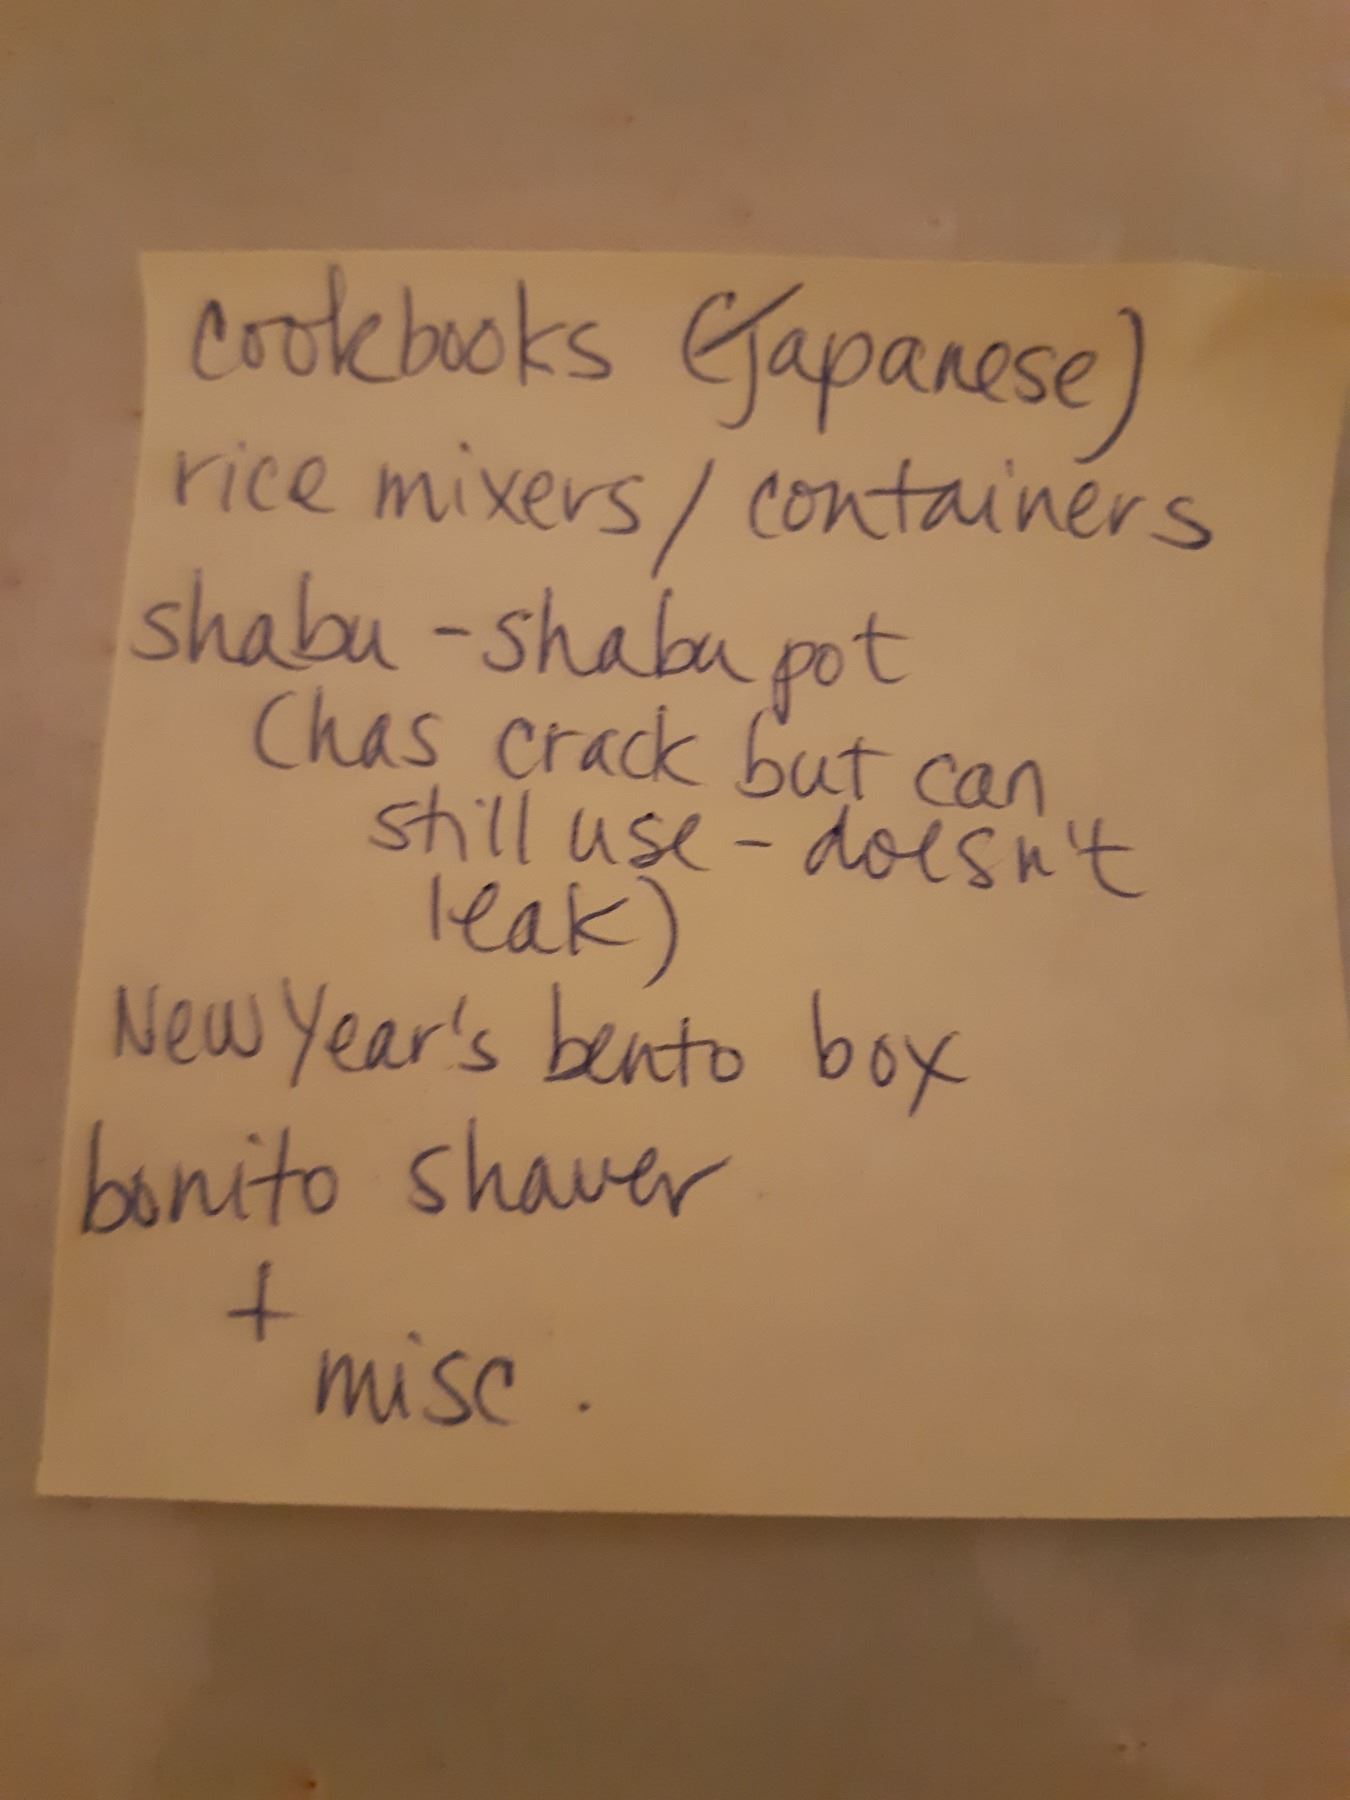 cookbooks (Japanese)
rice mixers/containers
shabu-shabu pot
(has crack but can
still use - doesn't
leak)
New Year's bento box
bonito shaver
+
misc.